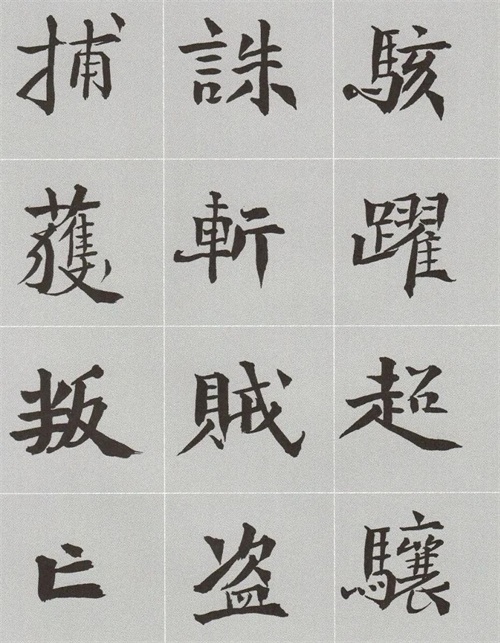 駭躍超驤
誅斬賊盗
捕獲叛亡